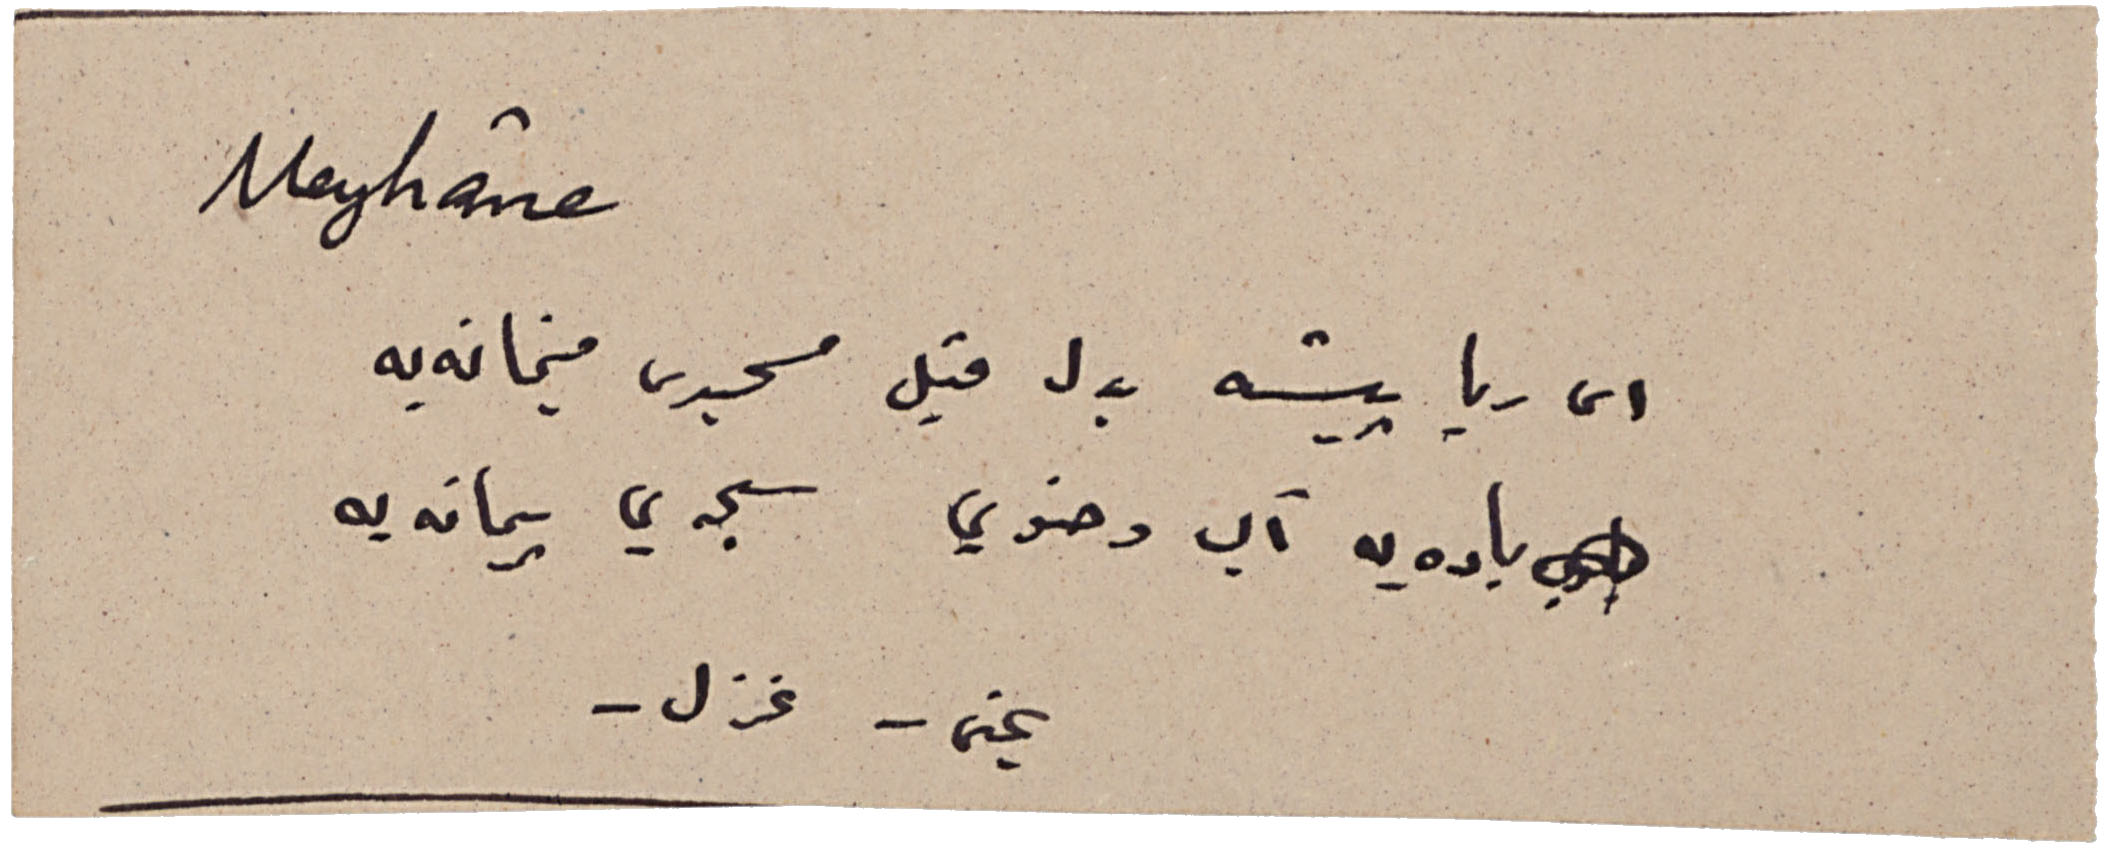 Meyhâne
ای ریا پیشه بدل قیل مسجدی میخانه‌یه
باده‌یه آب وضویی سبحه‌یی پیمانه‌یه
یحیی - غزل -